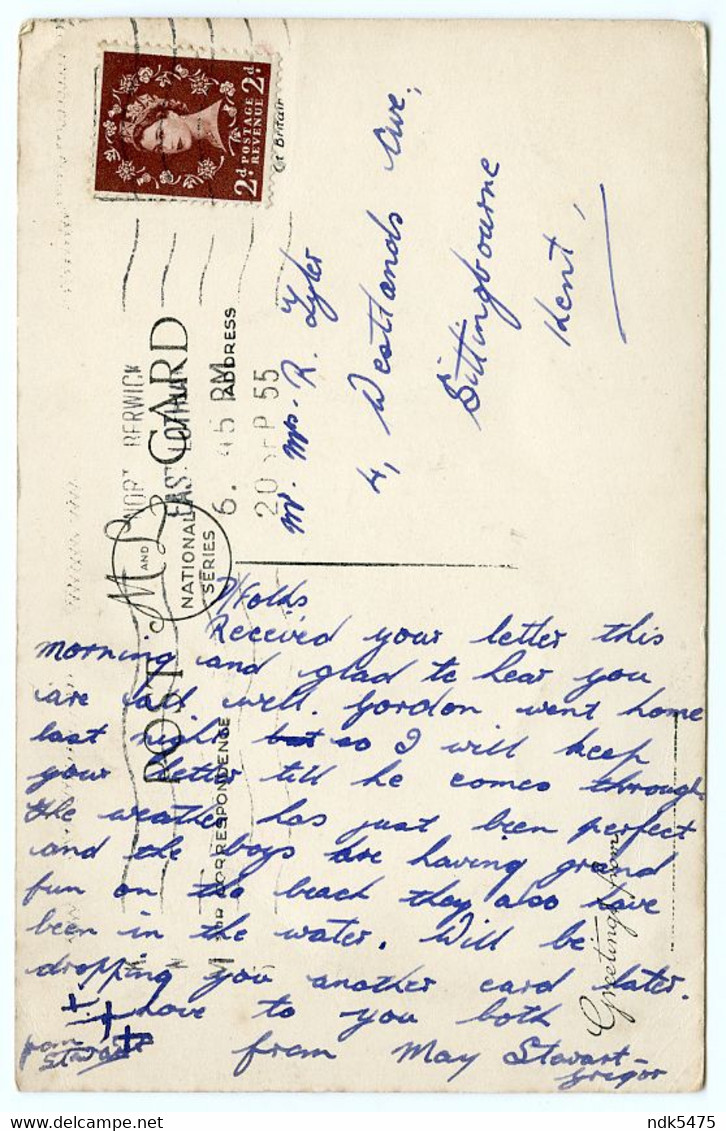 2d POSTAGE REVENUE 2d
Gt Britain
NORTH BERWICK
EAST LOTHIAN
6. 45 PM
20 SEP 55
POST CARD
M AND L
NATIONAL
SERIES
ADDRESS
FOR CORRESPONDENCE
Greetings from
Mr. Mrs. R. Tyler
4, Westlands Ave,
Sittingbourne
Kent,
H/Folks
Received your letter this
morning and glad to hear you
are all well. Gordon went home
last night but so I will keep
your letter till he comes through
the weather has just been perfect
and the boys are having grand
fun on the beach they also have
been in the water. Will be
dropping you another card later.
Love to you both
from May Stewart
Gregor
from
Stewart
ndk5475